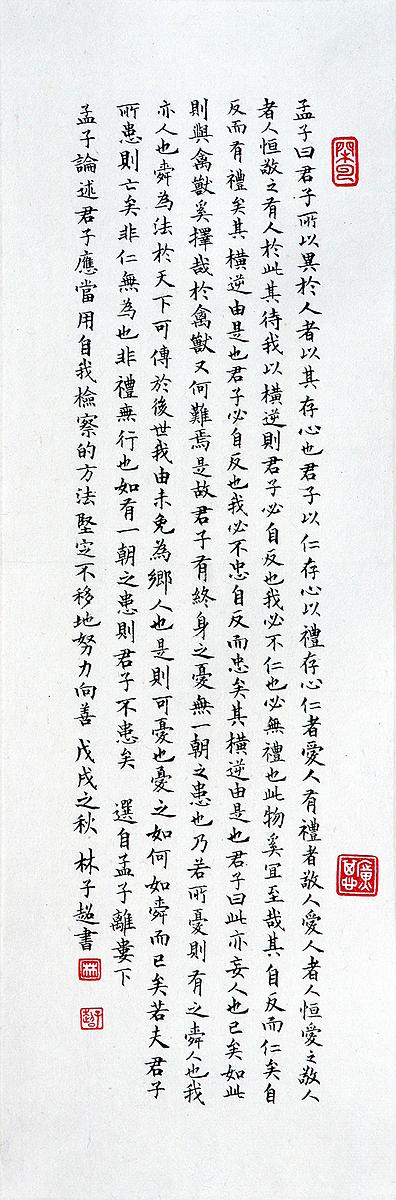 孟子曰君子所以異於人者以其存心也君子以仁存心以禮存心仁者愛人有禮者敬人愛人者人恒愛之敬人
者人恒敬之有人於此其待我以橫逆則君子必自反也我必不仁也必無禮也此物奚宜至哉其自反而仁矣自
反而有禮矣其橫逆由是也君子必自反也我必不忠自反而忠矣其橫逆由是也君子曰此亦妄人也已矣如此
則與禽獸奚擇哉於禽獸又何難焉是故君子有終身之憂無一朝之患也乃若所憂則有之舜人也我
亦人也舜為法於天下可傳於後世我由未免為鄉人也是則可憂也憂之如何如舜而已矣若夫君子
所患則亡矣非仁無為也非禮無行也如有一朝之患則君子不患矣 選自孟子離婁下
孟子論述君子應當用自我檢察的方法堅定不移地努力向善 戊戌之秋 林子超書
林
子超